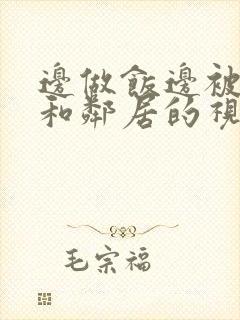 邊做飯邊被
和鄰居的視
毛宗福